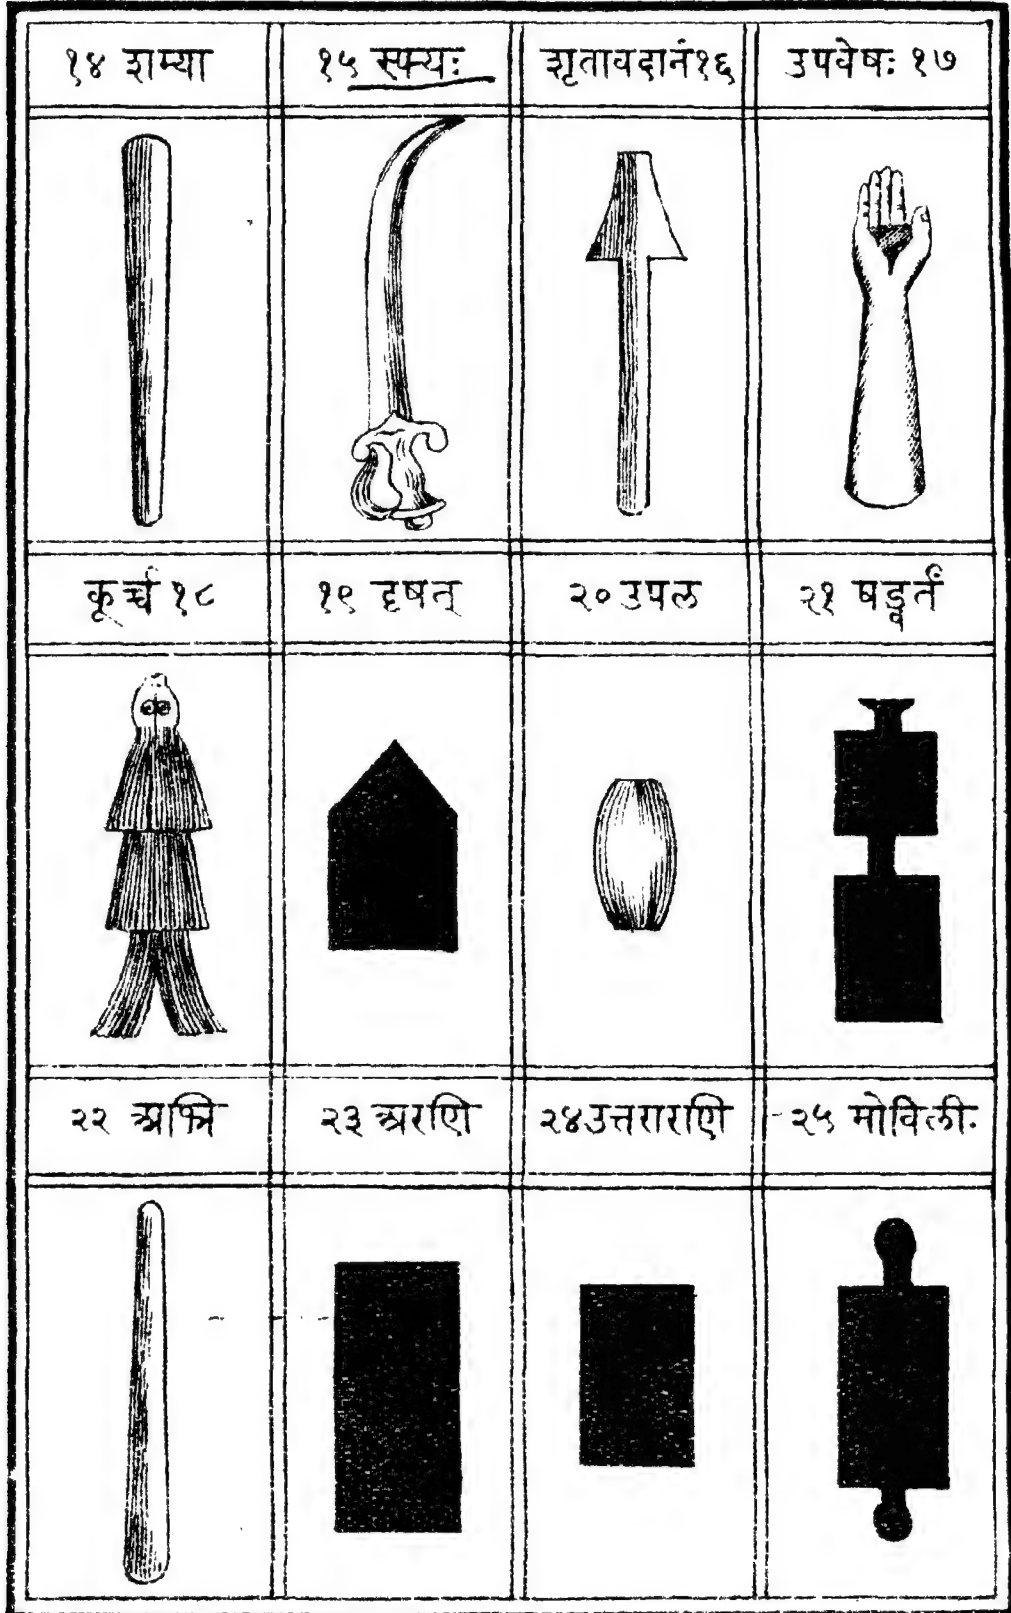 १४ शम्या
१५ स्फ्यः
शृतावदानं१६
उपवेषः १७
कूर्च्च १८
१९ दृषत्
२० उपल
२१ षड्वर्तं
२२ अभ्रि
२३ अरणि
२४उत्तरारणि
२५ मोविली